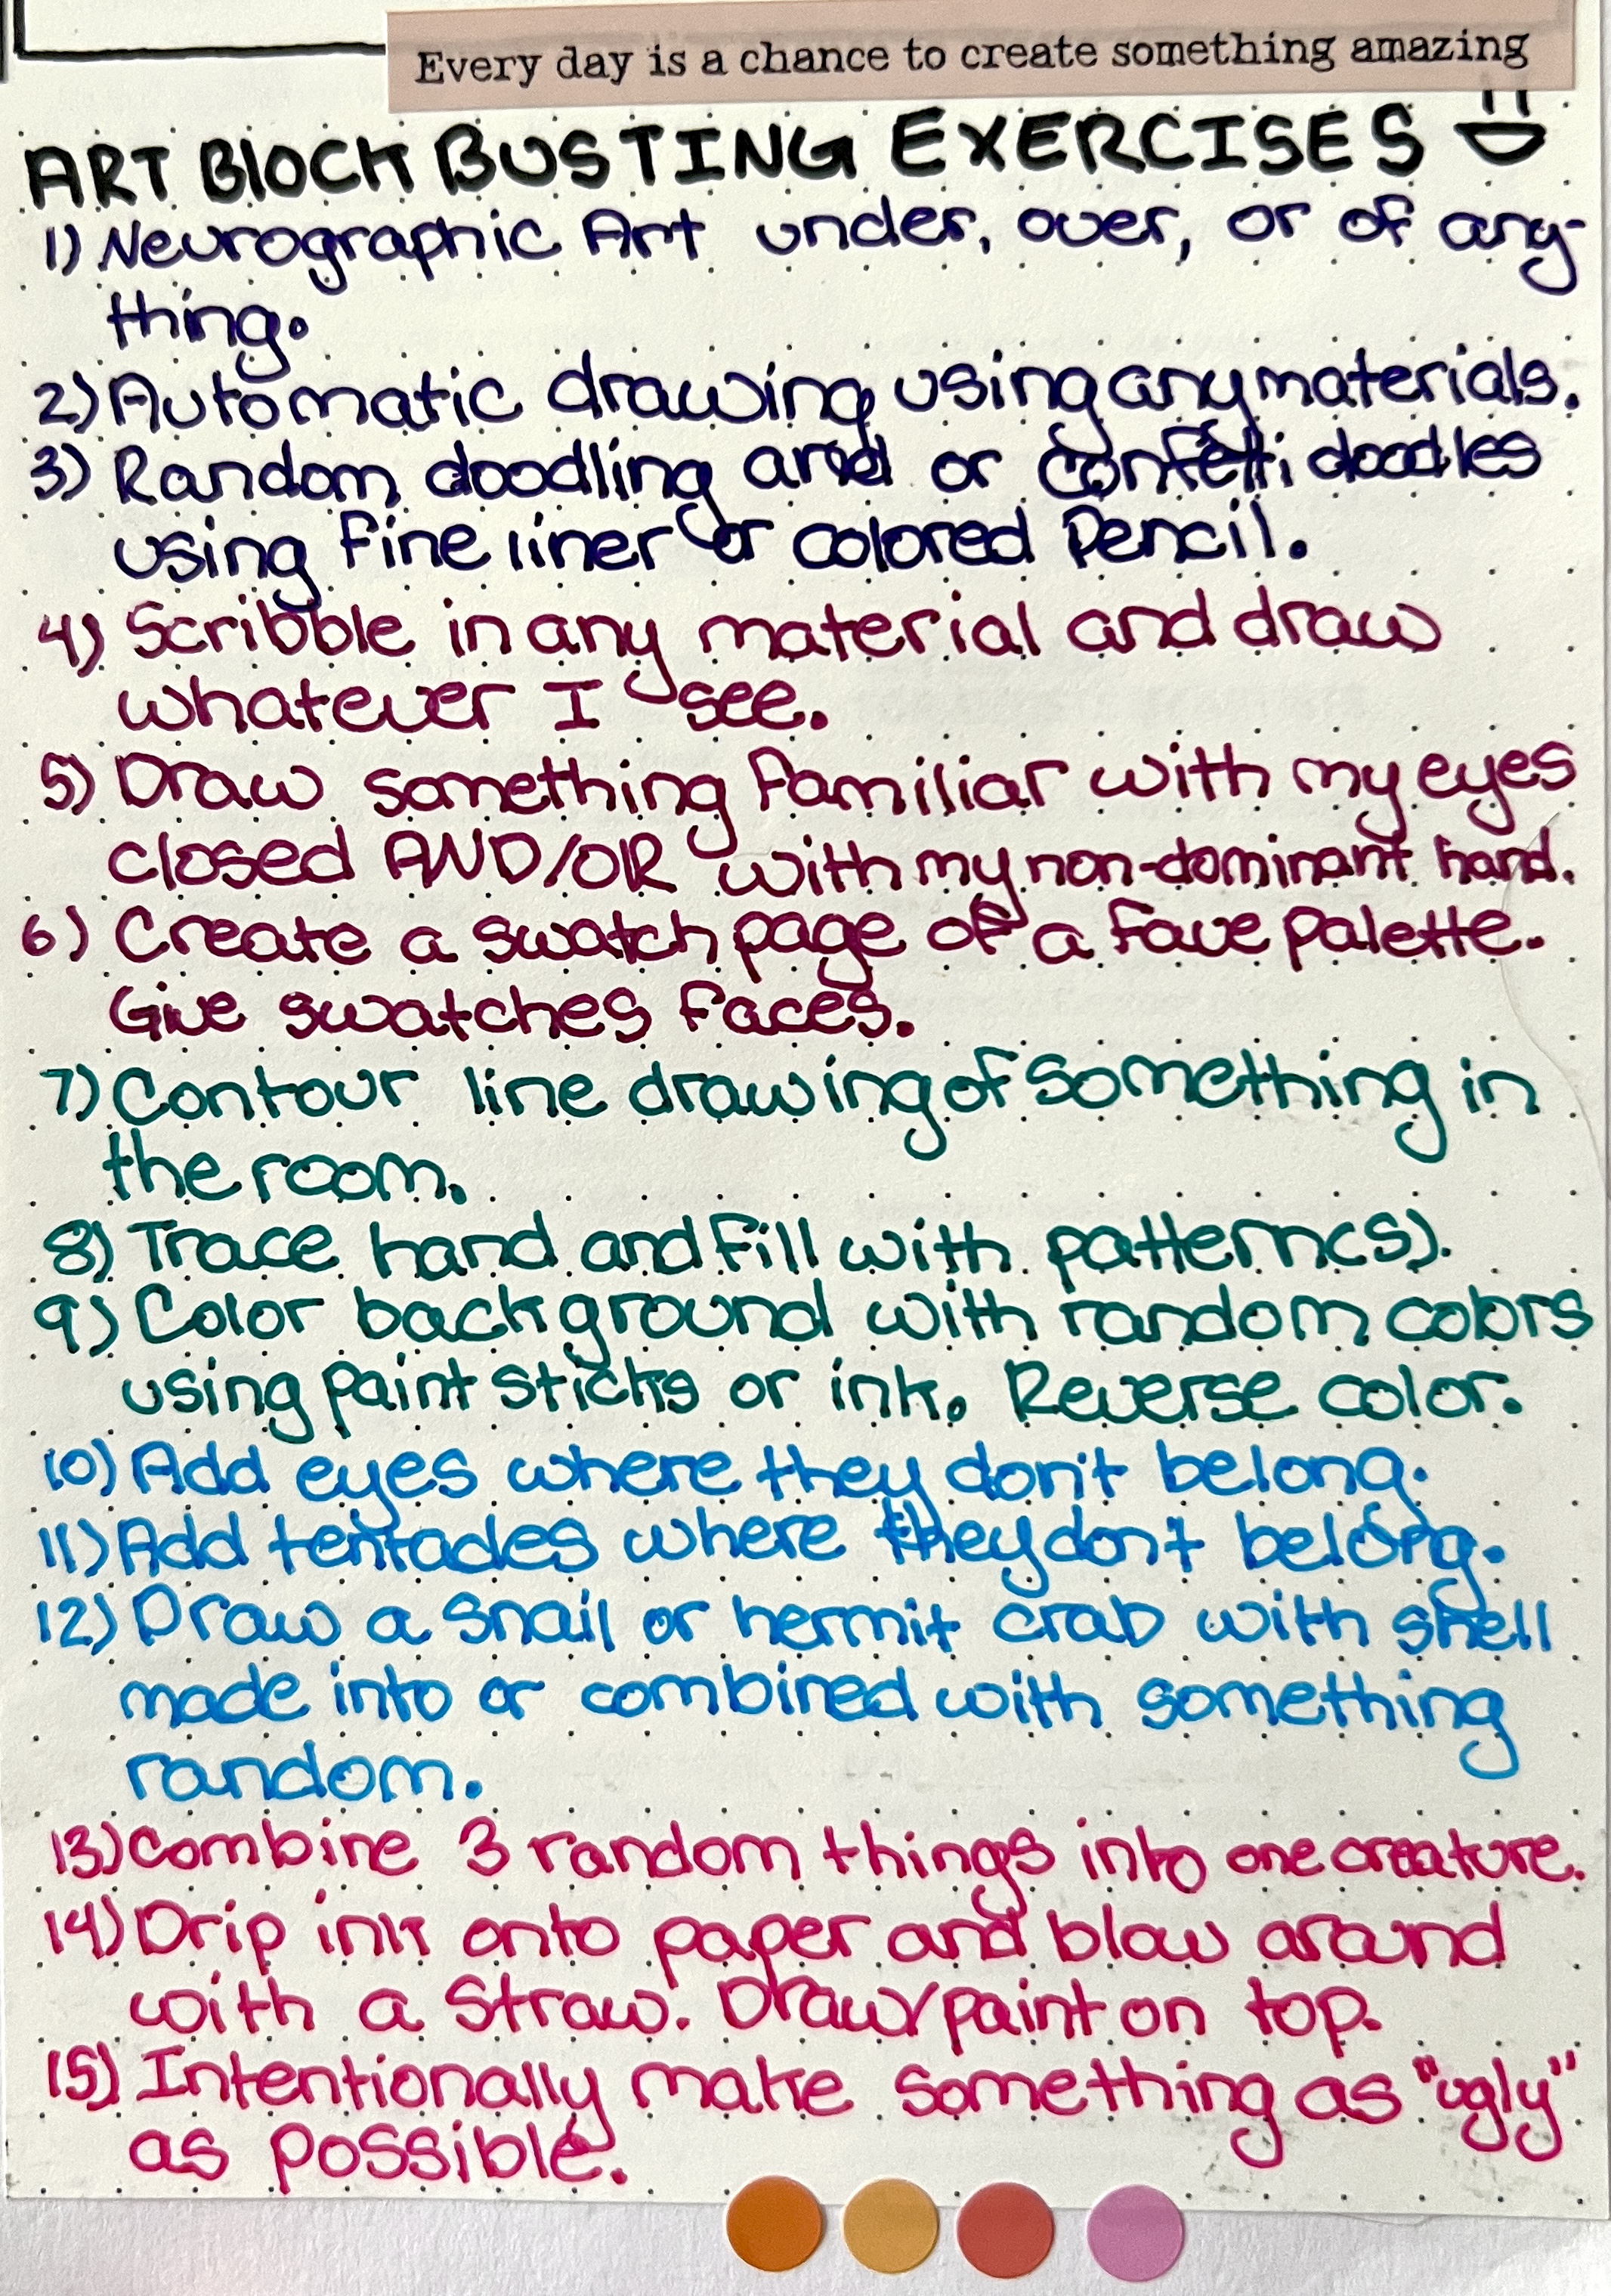 Every day is a chance to create something amazing
ART BLOCK BUSTING EXERCISES
1) Neurographic Art under, over, or of any-
thing.
2) Automatic drawing using any materials.
3) Random doodling and or confetti doodles
using fine liner or colored pencil.
4) Scribble in any material and draw
whatever I see.
5) Draw something familiar with my eyes
closed AND/OR with my non-dominant hand.
6) Create a swatch page of a fave palette.
Give swatches faces.
7) Contour line drawing of something in
the room.
8) Trace hand and fill with pattern(s).
9) Color background with random colors
using paint sticks or ink. Reverse color.
10) Add eyes where they don't belong.
11) Add tentacles where they don't belong.
12) Draw a snail or hermit crab with shell
made into or combined with something
random.
13) Combine 3 random things into one creature.
14) Drip ink onto paper and blow around
with a straw. Draw/paint on top.
15) Intentionally make something as "ugly"
as possible.